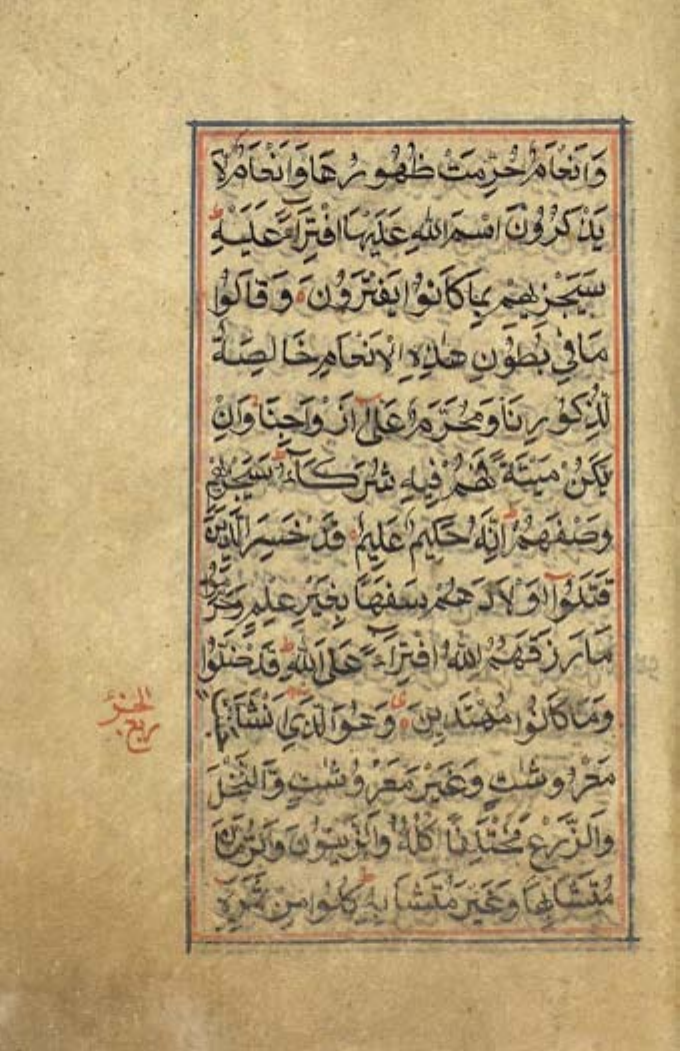 وَاَنْعَامٌ حُرِّمَتْ ظُهُورُهَا وَاَنْعَامٌ لَا
يَذْكُرُوْنَ اسْمَ اللهِ عَلَيْهَا افْتِرَآءً عَلَيْهِ ط
سَيَجْزِيهِمْ بِمَا كَانُوْا يَفْتَرُوْنَ ه وَقَالُوْا
مَا فِي بُطُوْنِ هٰذِهِ الْاَنْعَامِ خَالِصَةٌ
لِّذُكُوْرِنَا وَمُحَرَّمٌ عَلٰٓى اَزْوَاجِنَا وَاِنْ
يَّكُنْ مَيْتَةً فَهُمْ فِيْهِ شُرَكَآءُ ط سَيَجْزِيْهِمْ
وَصْفَهُمْ ط اِنَّهُ حَكِيْمٌ عَلِيْمٌ ه قَدْ خَسِرَ الَّذِيْنَ
قَتَلُوْٓا اَوْلَادَهُمْ سَفَهًا بِغَيْرِ عِلْمٍ وَّحَرَّمُوْا
مَا رَزَقَهُمُ اللهُ افْتِرَآءً عَلَى اللهِ ط قَدْ ضَلُّوْا
وَمَا كَانُوْا مُهْتَدِيْنَ ه وَهُوَ الَّذِيْٓ اَنْشَاَ جَنّٰتٍ
مَعْرُوْشٰتٍ وَغَيْرَ مَعْرُوْشٰتٍ وَّالنَّخْلَ
وَالزَّرْعَ مُخْتَلِفًا اُكُلُهُ وَالزَّيْتُوْنَ وَالرُّمَّانَ
مُتَشَابِهًا وَّغَيْرَ مُتَشَابِهٍ ط كُلُوْا مِنْ ثَمَرِهٖٓ
ربع الجزء